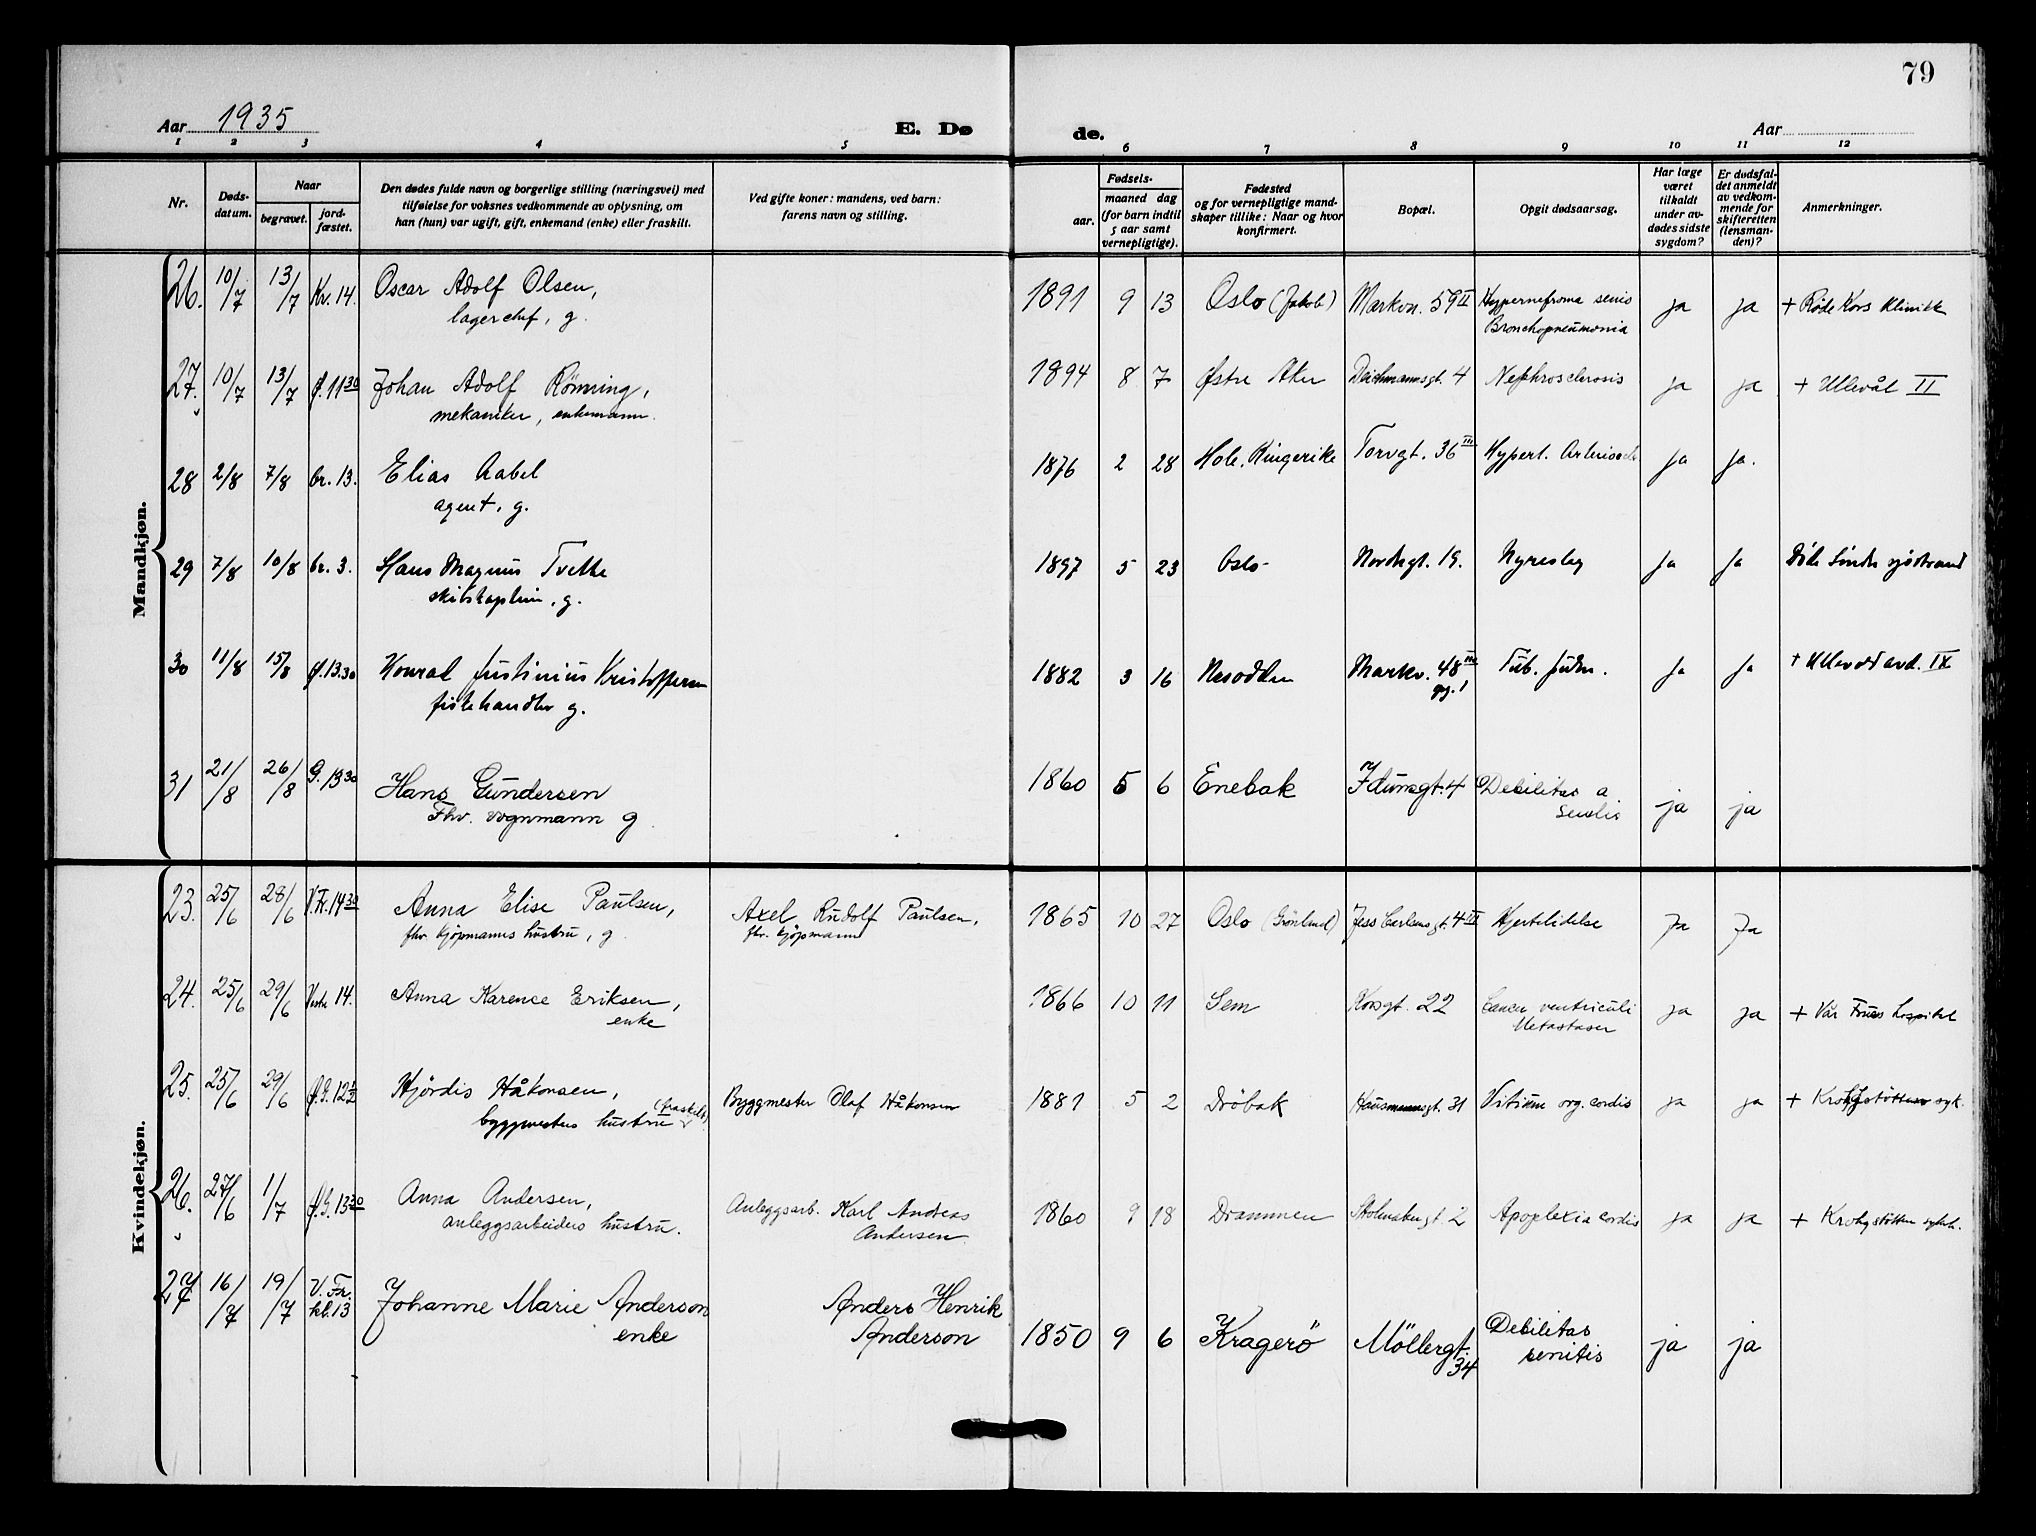 79
Aar 1935
E. Døde.
Aar
1 2 3 4 5 6 7 8 9 10 11 12
Nr.
Døds-
datum.
Naar
begravet.
jord-
fæstet.
Den dødes fulde navn og borgerlige stilling (næringsvei) med
tilføielse for voksnes vedkommende av oplysning, om
han (hun) var ugift, gift, enkemand (enke) eller fraskilt.
Ved gifte koner: mandens, ved barn:
farens navn og stilling.
Fødsels-
aar.
maaned dag
(for barn indtil
5 aar samt
vernepligtige).
Fødested
og for vernepligtige mand-
skaper tillike: Naar og hvor
konfirmert.
Bopæl.
Opgit dødsaarsag.
Har læge
været
tilkaldt
under av-
dødes sidste
sygdom?
Er dødsfal-
det anmeldt
av vedkom-
mende for
skifteretten
(lensman-
den)?
Anmerkninger.
Mandkjøn.
26. 10/7 13/7 Kr. 14. Oscar Adolf Olsen, 1891 9 13 Oslo (Jakob) Markvn. 59 II Hypernefroma ja ja + Røde Kors Klinikk
lagerchef, g. Bronchopneumonia
27. 10/7 13/7 11 30 Johan Adolf Rönning, 1894 8 7 Østre Aker Deichmannsgt. 4 Nephrosclerosis ja ja + Ullevål II
mekaniker, enkemann.
28 2/8 7/8 kr. 13. Elias Aabel 1876 2 28 Hole, Ringerike Torvgt. 36 III Hypert. ja ja.
agent, g.
29 7/8 10/8 kr. 3. Hans Magnus Tvette 1897 5 23 Oslo Nordregt. 19. ja ja
g.
30 11/8 15/8 13.30 Konrad Justinius Kristoffersen 1882 3 16 Nesodden Markv. 48 III Tub. pulm. ja ja + Ullevål avd. IX
fiskehandler g.
31 21/8 26/8 G. 13 30 Hans Gundersen 1860 5 6 Enebak Idunsgt. 4 Debilitas a ja ja
Fhv. vognmann g senilis
Kvindekjøn.
23. 25/6 28/6 V. Fr. 14 30 Anna Elise Paulsen, Axel Rudolf Paulsen, 1865 10 27 Oslo (Grønland) Jess Carlsensgt. 4 III Hjertelidelse Ja Ja
fhv. kjøpmanns hustru, g. fhv. kjøpmann
24. 25/6 29/6 Vestre 14. Anna Karence Eriksen, 1866 10 11 Sem Korsgt. 22 Cancer ventriculi ja ja + Vår Frues hospital
enke Metastaser
25. 25/6 29/6 Ø.G. 12 1/2 Hjördis Håkonsen, Byggmester Olaf Håkonsen 1881 5 2 Dröbak Hausmannsgt. 31 Vitium org. cordis ja ja + Krohgstötten syk.
byggmesters hustru (fraskilt)
26. 27/6 1/7 Ø.G. 13 30 Anna Andersen, Anleggsarb. Karl Andreas 1860 9 18 Drammen 2 Apoplexia cordis ja ja + Krohgstötten sykh.
anleggsarbeiders hustru. Andersen
27 16/7 19/7 V. Fr. Johanne Marie Anderson Anders Henrik 1850 9 6 Kragerö Möllergt. Debilitas ja ja
kl. 13 enke Anderson 34 senitis